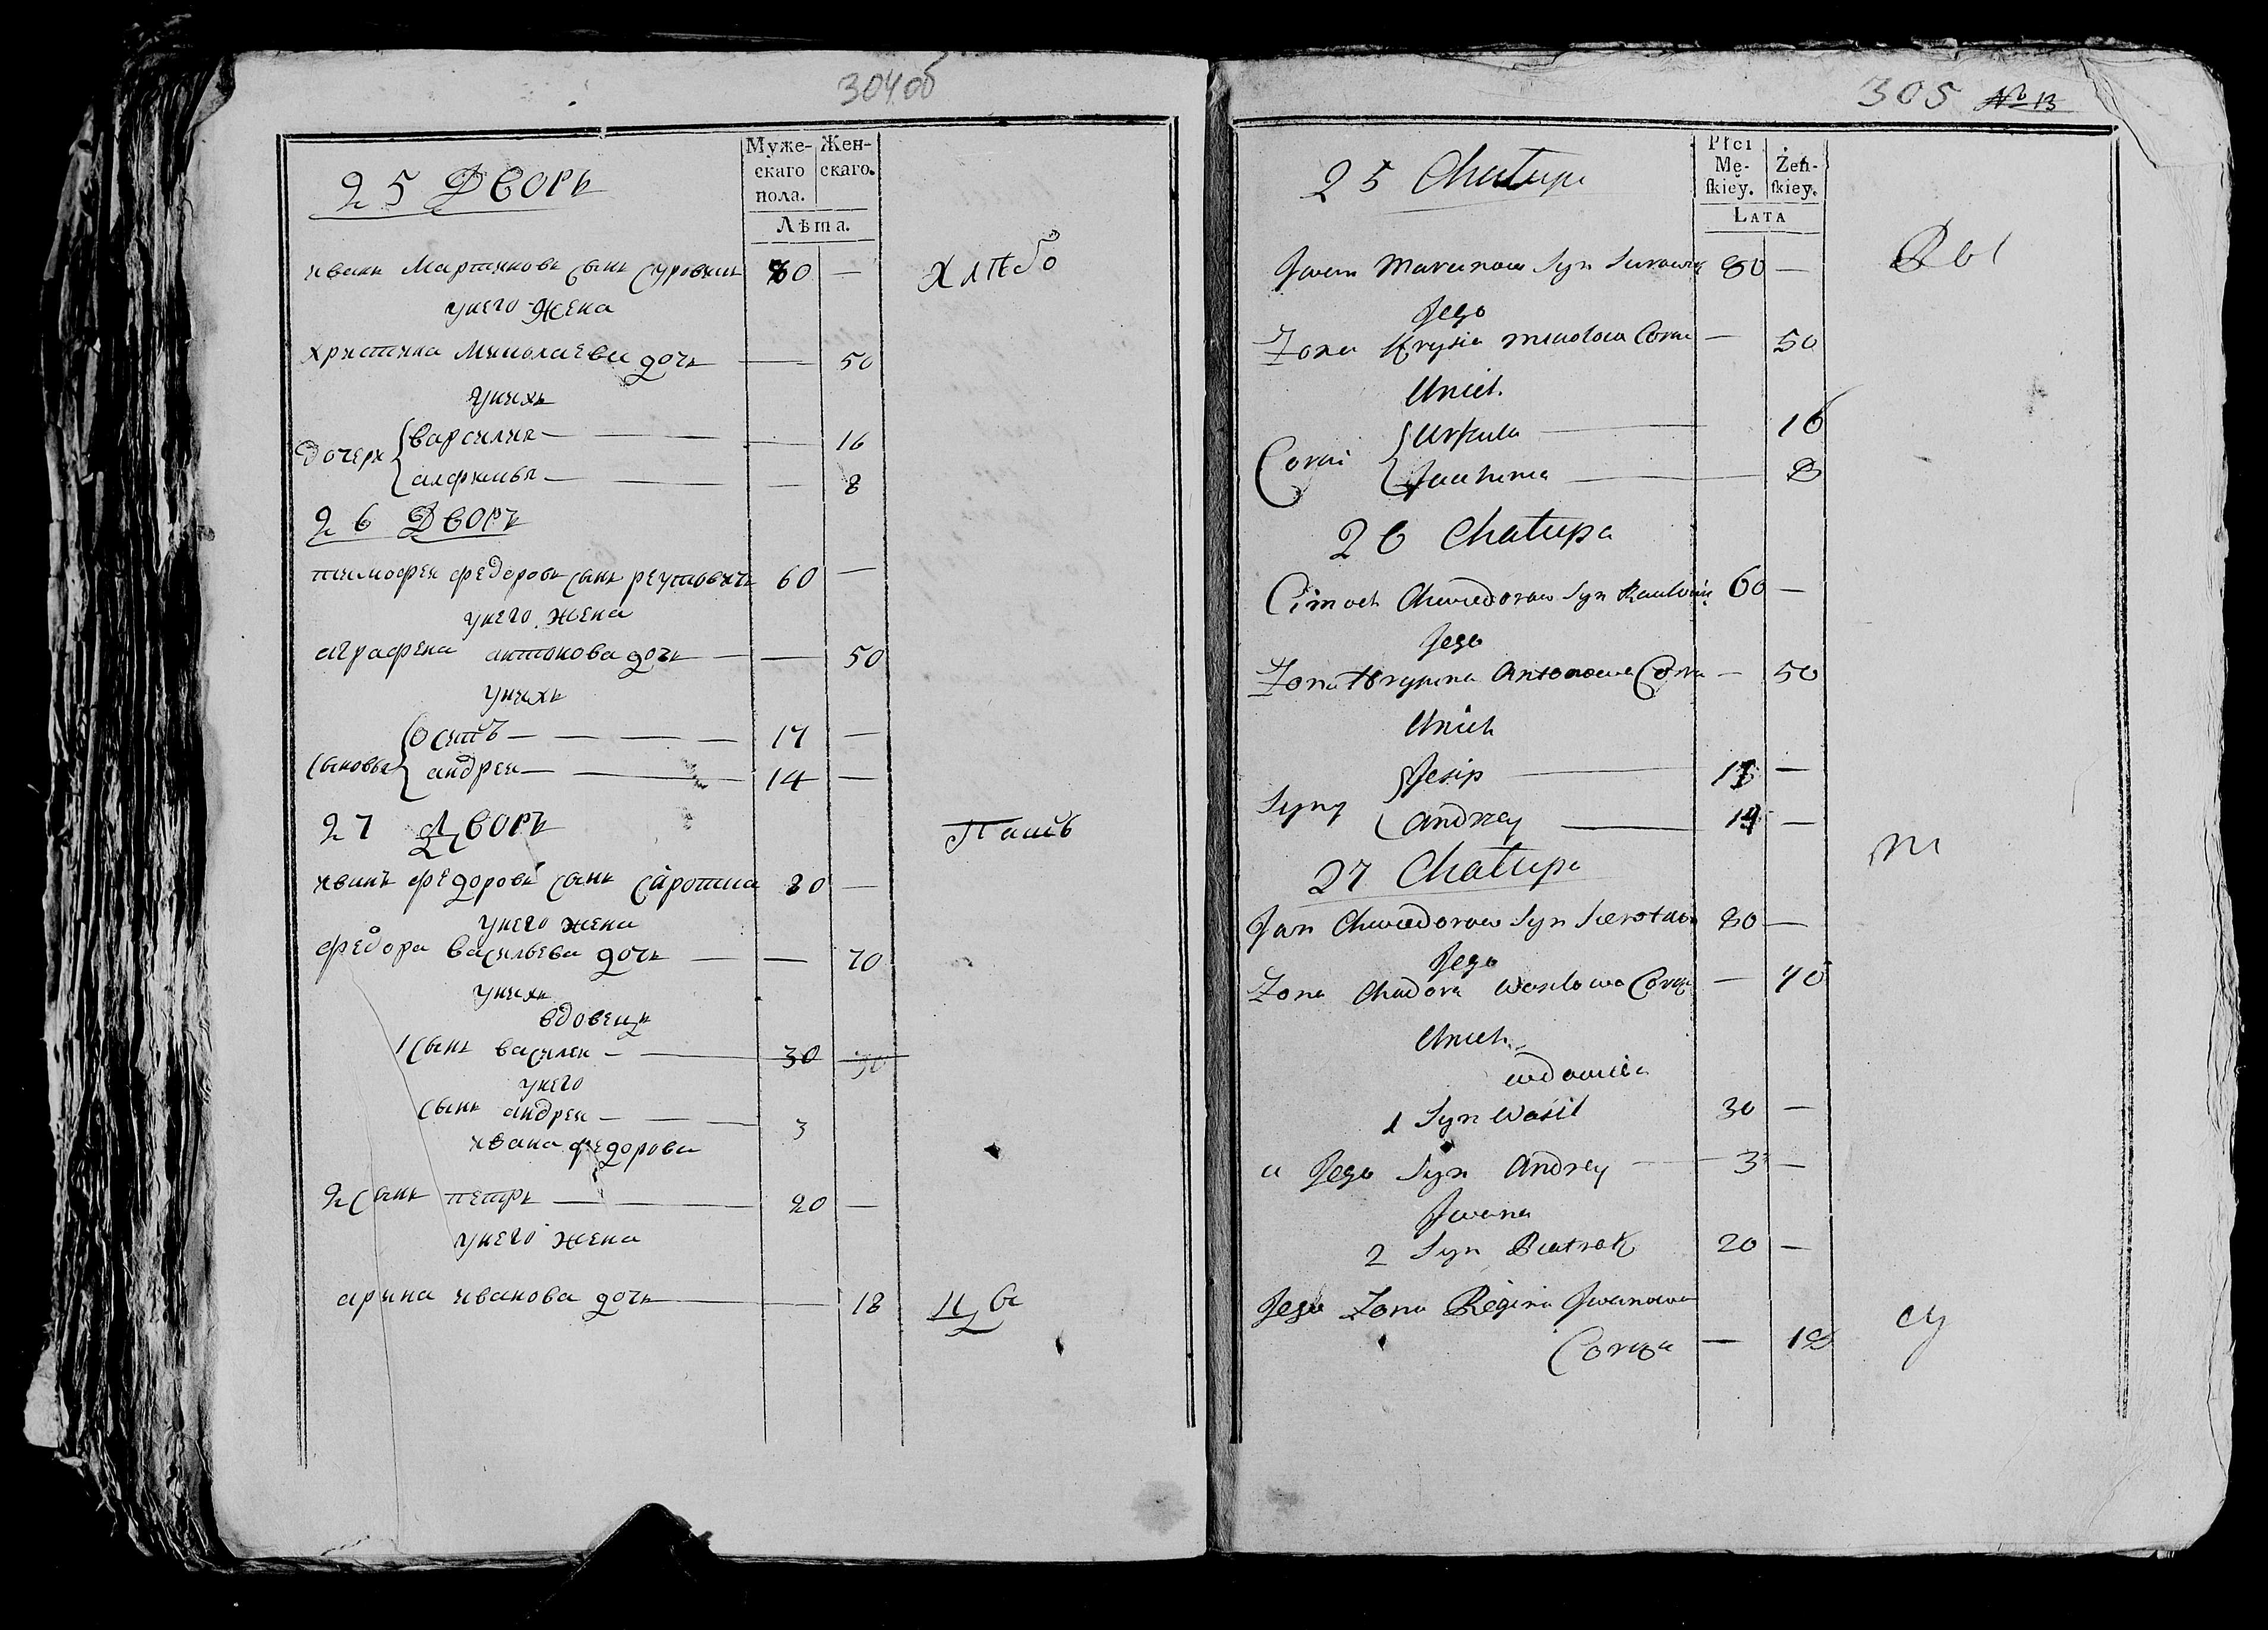 304об
Муже- Жен-
скаго скаго.
пола.
Лѣта.
25 Дворъ
иванъ Мартиновъ сынъ Суровицъ 80 —
унего жена
христина Миколаева дочь — 50
унихъ
дочери варсилия — 16
— 8
26 Дворъ
тимофеи федоровъ сынъ реутовичъ 60 —
унего жена
аграфена антонова дочь — 50
унихъ
сыновья осипъ — 17 —
андреи — 14 —
27 Дворъ
иванъ федоровъ сынъ Сиротка 80 —
унего жена
федора васильева дочь — 70
унихъ
вдовецъ
1 сынъ василеи — 30
унего
сынъ андреи — 3
ивана федорова
2 сынъ петръ — 20 —
унего жена
арина иванова дочь — 18
305 № 13
Płci
Mę- Żeń-
ſkiey. ſkiey.
LATA
25 Chałupa
Jwan Marcinow Syn 80 —
Jego
Zona Krysia Corka — 50
Unich
Corki Urszula — 16
— 8
26 Chałupa
Cimoch Chwiedorow Syn 60 —
Jego
Zona Hrypina Antonowa Corka — 50
Unich
Syny Jesip — 17 —
Andrzey — 14 —
27 Chałupa
Jan Chwiedorow Syn Sierotka 80 —
Jego
Zona Chadora Wasilowa Corka — 70
Unich
wdowiec
1 Syn Wasil 30 —
a Jego Syn Andrey — 3 —
Jwana
2 Syn Piatrok 20 —
Jego Zona Regina Jwanowa
Corka — 18